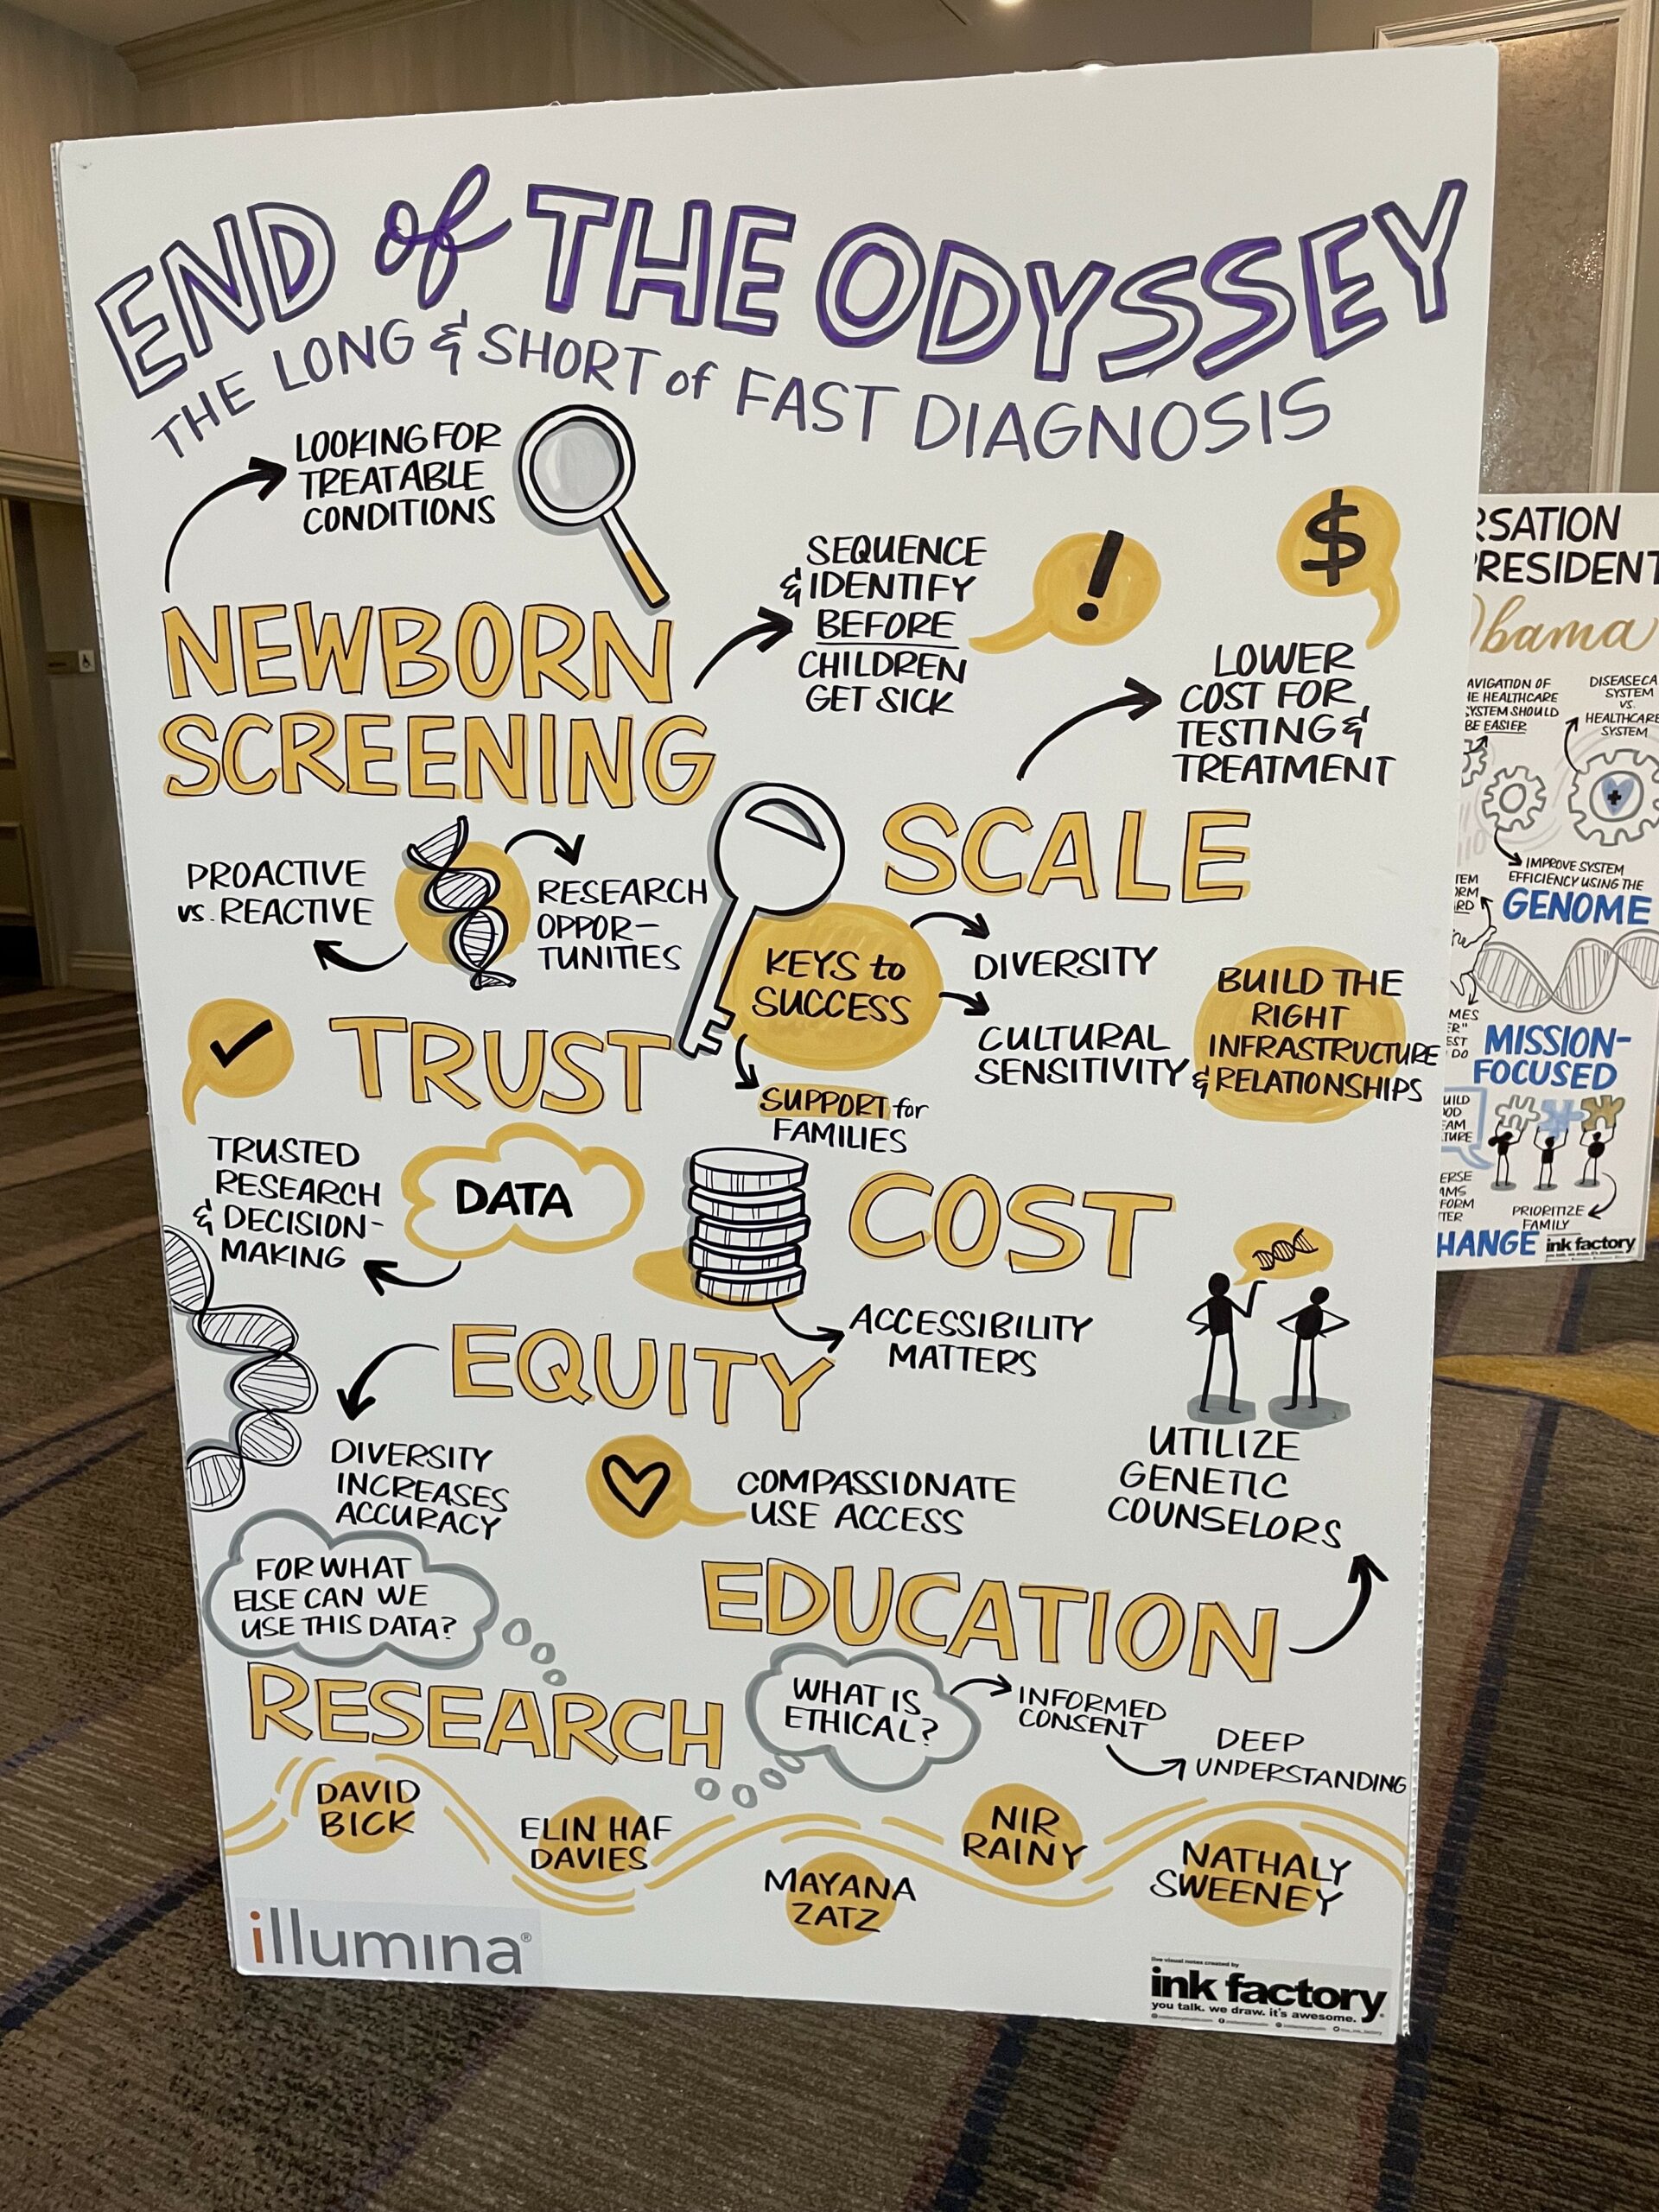 END of THE ODYSSEY
THE LONG & SHORT of FAST DIAGNOSIS
LOOKING FOR
TREATABLE
CONDITIONS
NEWBORN
SCREENING
SEQUENCE
& IDENTIFY
BEFORE
CHILDREN
GET SICK
!
$
LOWER
COST FOR
TESTING &
TREATMENT
SCALE
PROACTIVE
vs. REACTIVE
RESEARCH
OPPOR-
TUNITIES
KEYS to
SUCCESS
DIVERSITY
CULTURAL
SENSITIVITY
SUPPORT for
FAMILIES
BUILD THE
RIGHT
INFRASTRUCTURE
& RELATIONSHIPS
TRUST
TRUSTED
RESEARCH
& DECISION-
MAKING
DATA
COST
ACCESSIBILITY
MATTERS
EQUITY
DIVERSITY
INCREASES
ACCURACY
COMPASSIONATE
USE ACCESS
UTILIZE
GENETIC
COUNSELORS
EDUCATION
FOR WHAT
ELSE CAN WE
USE THIS DATA?
RESEARCH
WHAT IS
ETHICAL?
INFORMED
CONSENT
DEEP
UNDERSTANDING
DAVID
BICK
ELIN HAF
DAVIES
MAYANA
ZATZ
NIR
RAINY
NATHALY
SWEENEY
illumina®
live visual notes created by
ink factory
you talk. we draw. it's awesome.
RSATION
RESIDENT
Obama
AVIGATION OF
HE HEALTHCARE
SYSTEM SHOULD
BE EASIER
DISEASECA
SYSTEM
VS.
HEALTHCARE
SYSTEM
IMPROVE SYSTEM
EFFICIENCY USING THE
GENOME
MISSION-
FOCUSED
PRIORITIZE
FAMILY
HANGE
ink factory